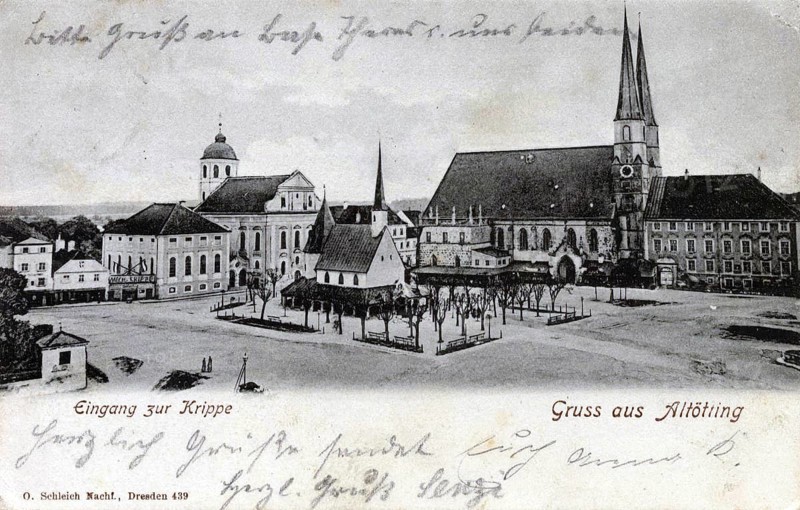 Bitte Gruß an Base Theres u. uns beiden
Eingang zur Krippe
Gruss aus Altötting
Herzlich Grüße sendet Euch Anna K.
Herzl. Gruß Senzi
O. Schleich Nachf., Dresden 439